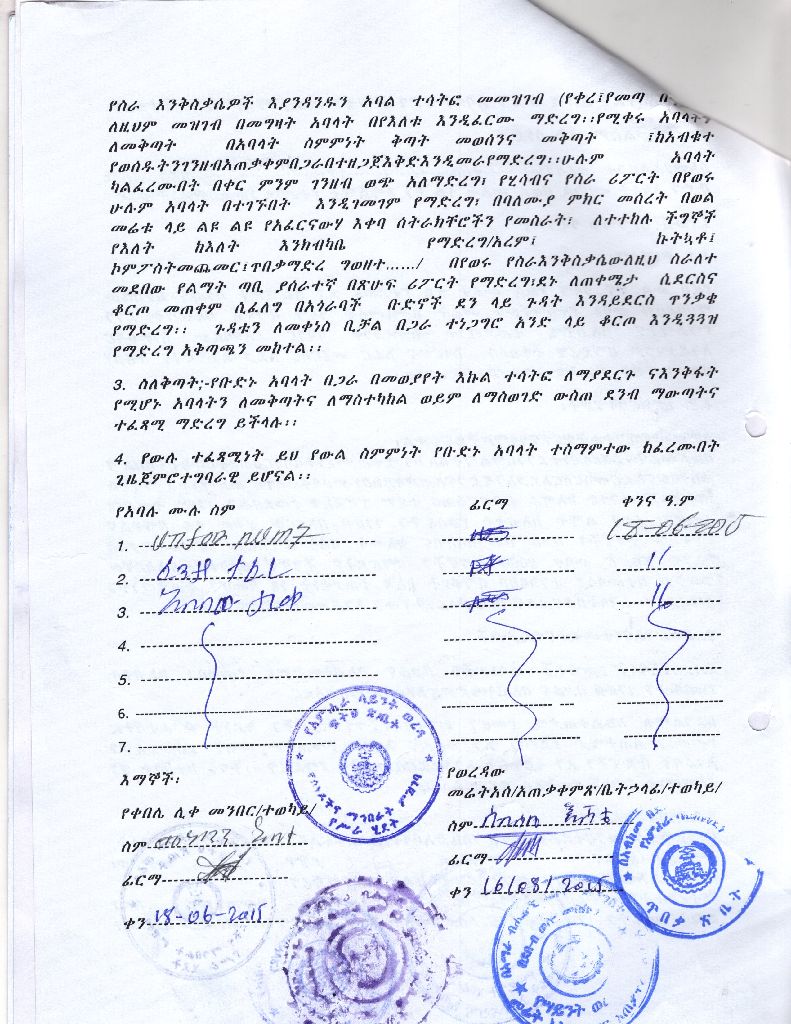 የስራ እንቅስቃሴዎች እያንዳንዱን አባል ተሳትፎ መመዝገብ (የቀረ፤የመጣ በ
ለዚህም መዝገብ በመግዛት አባላት በየእለቱ እንዲፈርሙ ማድረግ፡፡የሚቀሩ አባላትን
ለመቅጣት በአባላት ስምምነት ቅጣት መወሰንና መቅጣት ፣ከአብቁተ
የወሰዱትንገንዘብአጠቃቀምበጋራበተዘጋጀእቅድእንዲመራየማድረግ፡፡ሁሉም አባላት
ካልፈረሙበት በቀር ምንም ገንዘብ ወጭ አለማድረግ፣ የሂሳብና የስራ ሪፖርት በየወሩ
ሁሉም አባላት በተገኙበት እንዲገመገም የማድረግ፣ በባለሙያ ምክር መሰረት በወል
መሬቱ ላይ ልዩ ልዩ የአፈርናውሃ እቀባ ሰትራክቸሮችን የመስራት፣ ለተተከሉ ችግኞች
የእለት ከእለት እንክብካቤ የማድረግ/አረም፤ ኩትኳቶ፤
ኮምፖስትመጨመር፤ጥበቃማድረ ግወዘተ....../ በየወሩ የስራእንቅስቃሴውለዚህ ስራለተ
መደበው የልማት ጣቢ ያሰራተኛ በጽሁፍ ሪፖርት የማድረግ፡ደኑ ለጠቀሜታ ሲደርስና
ቆርጦ መጠቀም ሲፈለግ በአጎራባች ቡድኖች ደን ላይ ጉዳት እንዳይደርስ ጥንቃቄ
የማድረግ፡፡ ጉዳቱን ለመቀነስ ቢቻል በጋራ ተነጋግሮ አንድ ላይ ቆርጦ እንዲጓጓዝ
የማድረግ አቅጣጫን መከተል፡፡
3. ስለቅጣት;-የቡድኑ አባላት በጋራ በመወያየት እኩል ተሳትፎ ለማያደርጉ ናእንቅፋት
የሚሆኑ አባላትን ለመቅጣትና ለማስተካከል ወይም ለማስወገድ ውስጠ ደንብ ማውጣትና
ተፈጻሚ ማድረግ ይችላሉ፡፡
4. የውሉ ተፈጻሚነት ይህ የውል ስምምነት የቡድኑ አባላት ተስማምተው ከፈረሙበት
ጊዜጀምሮተግባራዊ ይሆናል፡፡
የአባሉ ሙሉ ስም ፊርማ ቀንና ዓ.ም
1. 18-06-2015
2. "
3. "
4.
5.
6.
7.
እማኞች፡
የቀበሌ ሊቀ መንበር/ተወካይ/
ስም
ፊርማ
ቀን 18-06-2015
የወረዳው
መሬትአስ/አጠቃቀምጽ/ቤትኃላፊ/ተወካይ/
ስም
ፊርማ
ቀን 16/08/2015